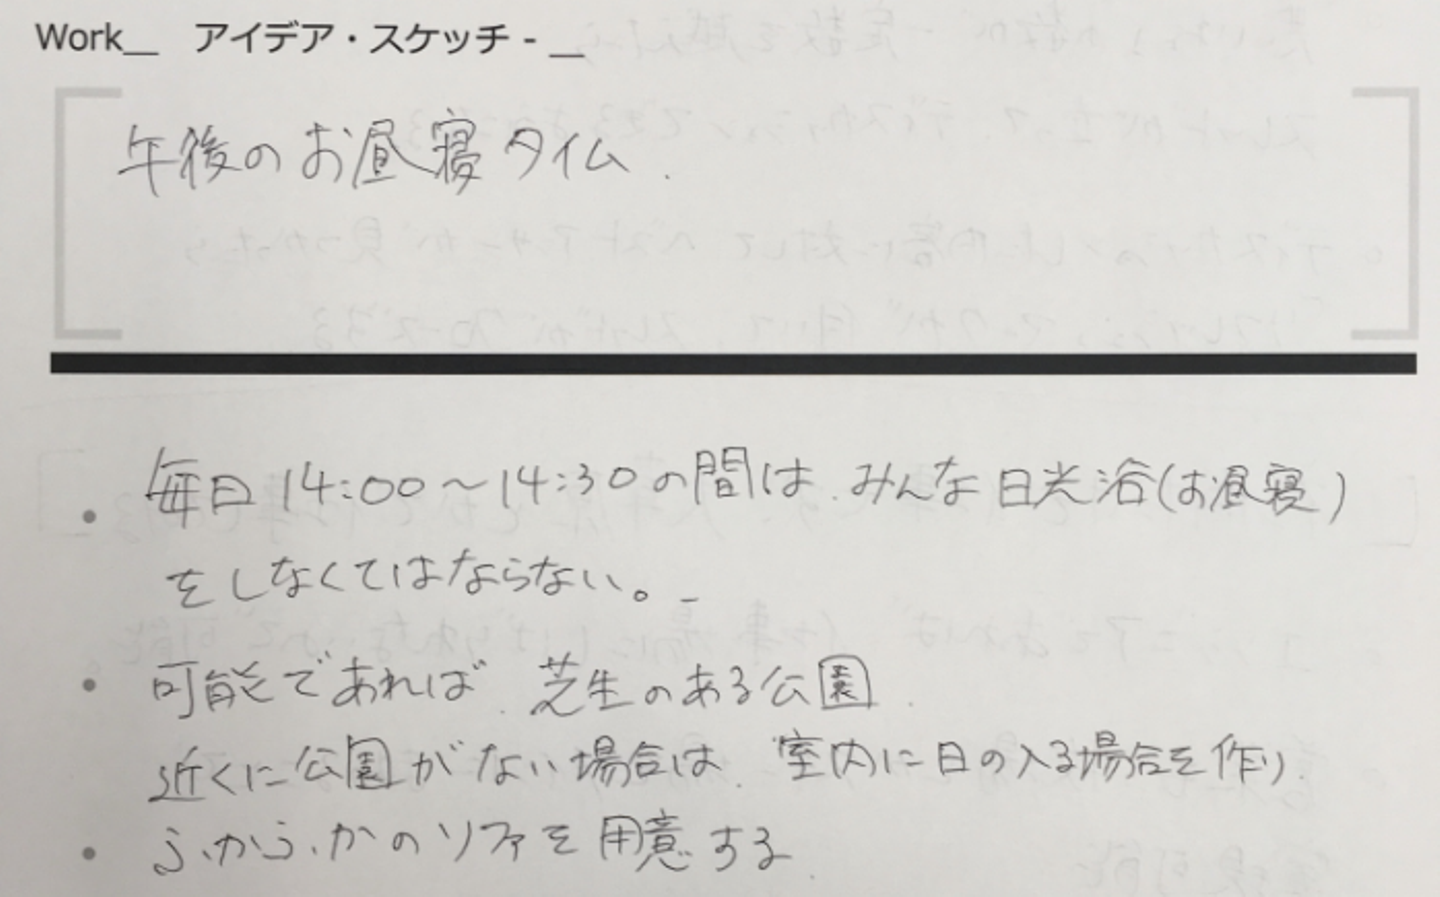 Work__ アイデア・スケッチ - __
午後のお昼寝タイム.
• 毎日 14:00～14:30の間は、みんな日光浴(お昼寝)
をしなくてはならない。
• 可能であれば、芝生のある公園.
近くに公園がない場合は、室内に日の入る場合を作り、
• ふかふかのソファを用意する.